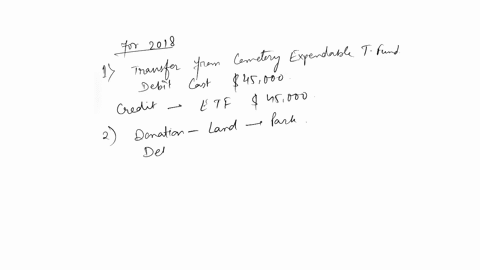 For 2018
1) Transfer from Cemetery Expendable T. Fund
Debit Cast $45,000.
Credit → ETF $45,000.
2) Donation - Land → Park.
Del